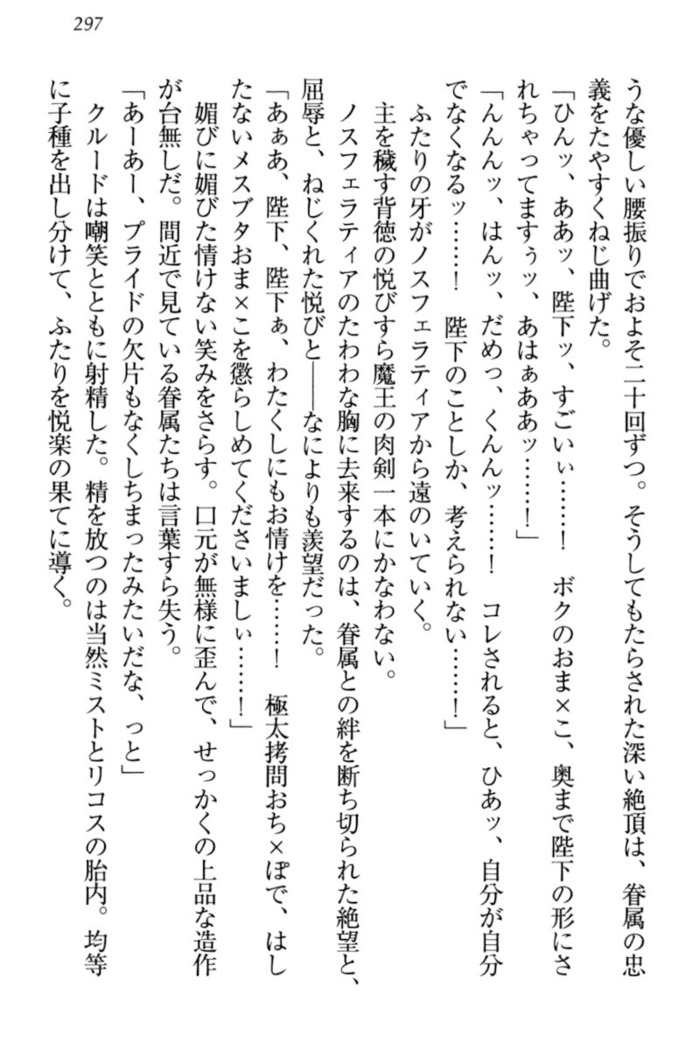 297
うな優しい腰振りでおよそ二十回ずつ。そうしてもたらされた深い絶頂は、眷属の忠
義をたやすくねじ曲げた。
「ひんッ、ああッ、陛下ッ、すごいぃ……！　ボクのおま×こ、奥まで陛下の形にさ
れちゃってますぅッ、あはぁああッ……！」
「んんんッ、はんッ、だめっ、くんんッ……！　コレされると、ひあッ、自分が自分
でなくなるッ……！　陛下のことしか、考えられない……！」
ふたりの牙がノスフェラティアから遠のいていく。
主を穢す背徳の悦びすら魔王の肉剣一本にかなわない。
ノスフェラティアのたわわな胸に去来するのは、眷属との絆を断ち切られた絶望と、
屈辱と、ねじくれた悦びと――なによりも羨望だった。
「あぁあ、陛下、陛下ぁ、わたくしにもお情けを……！　極太拷問おち×ぽで、はし
たないメスブタおま×こを懲らしめてくださいましぃ……！」
媚びに媚びた情けない笑みをさらす。口元が無様に歪んで、せっかくの上品な造作
が台無しだ。間近で見ている眷属たちは言葉すら失う。
「あーあー、プライドの欠片もなくしちまったみたいだな、っと」
クルードは嘲笑とともに射精した。精を放つのは当然ミストとリコスの胎内。均等
に子種を出し分けて、ふたりを悦楽の果てに導く。